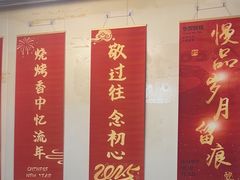 烧烤香中忆流年
CHINESE
NEW YEAR
敬过往 念初心
2025
慢品岁月留痕